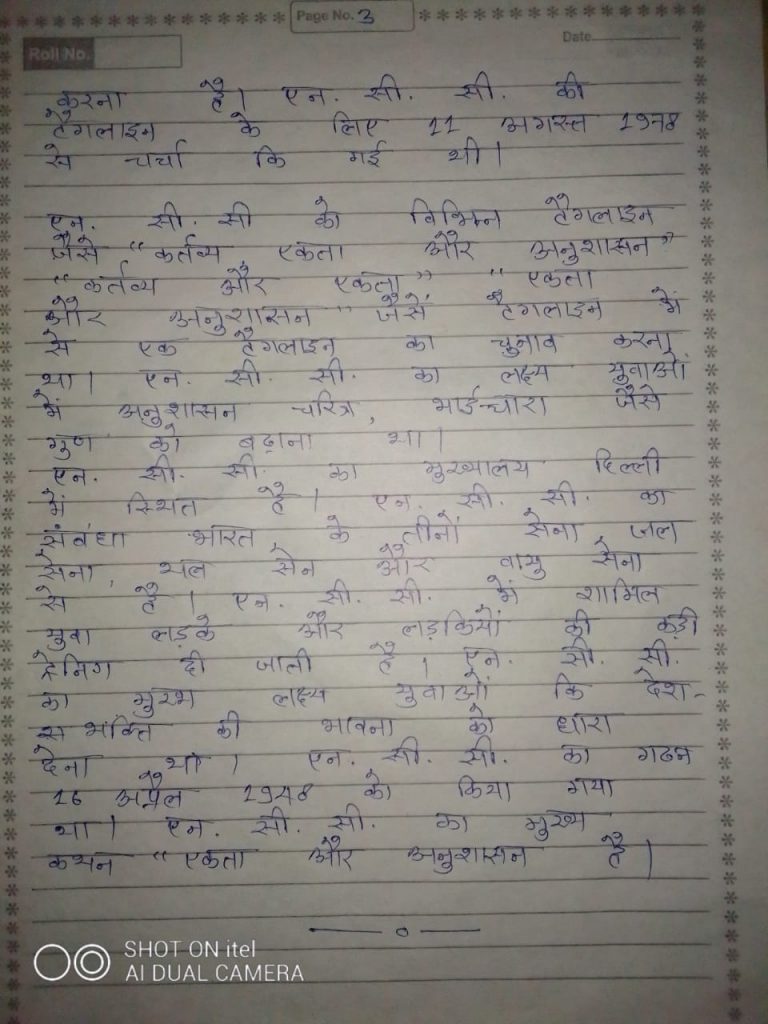 Page No. 3
Date
Roll No.
करना है। एन. सी. सी. की
टैगलाइन के लिए 11 अगस्त 1948
से चर्चा कि गई थी।
एन. सी. सी को विभिन्न टैगलाइन
जैसे "कर्तव्य एकता और अनुशासन"
"कर्तव्य और एकता" "एकता
और अनुशासन" जैसें टैगलाइन में
से एक टैगलाइन का चुनाव करना
था। एन. सी. सी. का लक्ष्य युवाओं
में अनुशासन चरित्र, भाईचारा जैसे
गुण को बढ़ाना था।
एन. सी. सी. का मुख्यालय दिल्ली
में स्थित है। एन. सी. सी. का
संबंधा भारत के तीनों सेना जल
सेना, थल सेन और वायु सेना
से है। एन. सी. सी. में शामिल
युवा लड़के और लड़कियों की कड़ी
ट्रेनिग दी जाती है। एन. सी. सी.
का मुख्भ लक्ष्य युवाओं कि देश-
स भक्ति की भावना को धारा
देना था। एन. सी. सी. का गठन
16 अप्रैल 1948 को किया गया
था। एन. सी. सी. का मुख्य
कथन "एकता और अनुशासन है।
SHOT ON itel
AI DUAL CAMERA